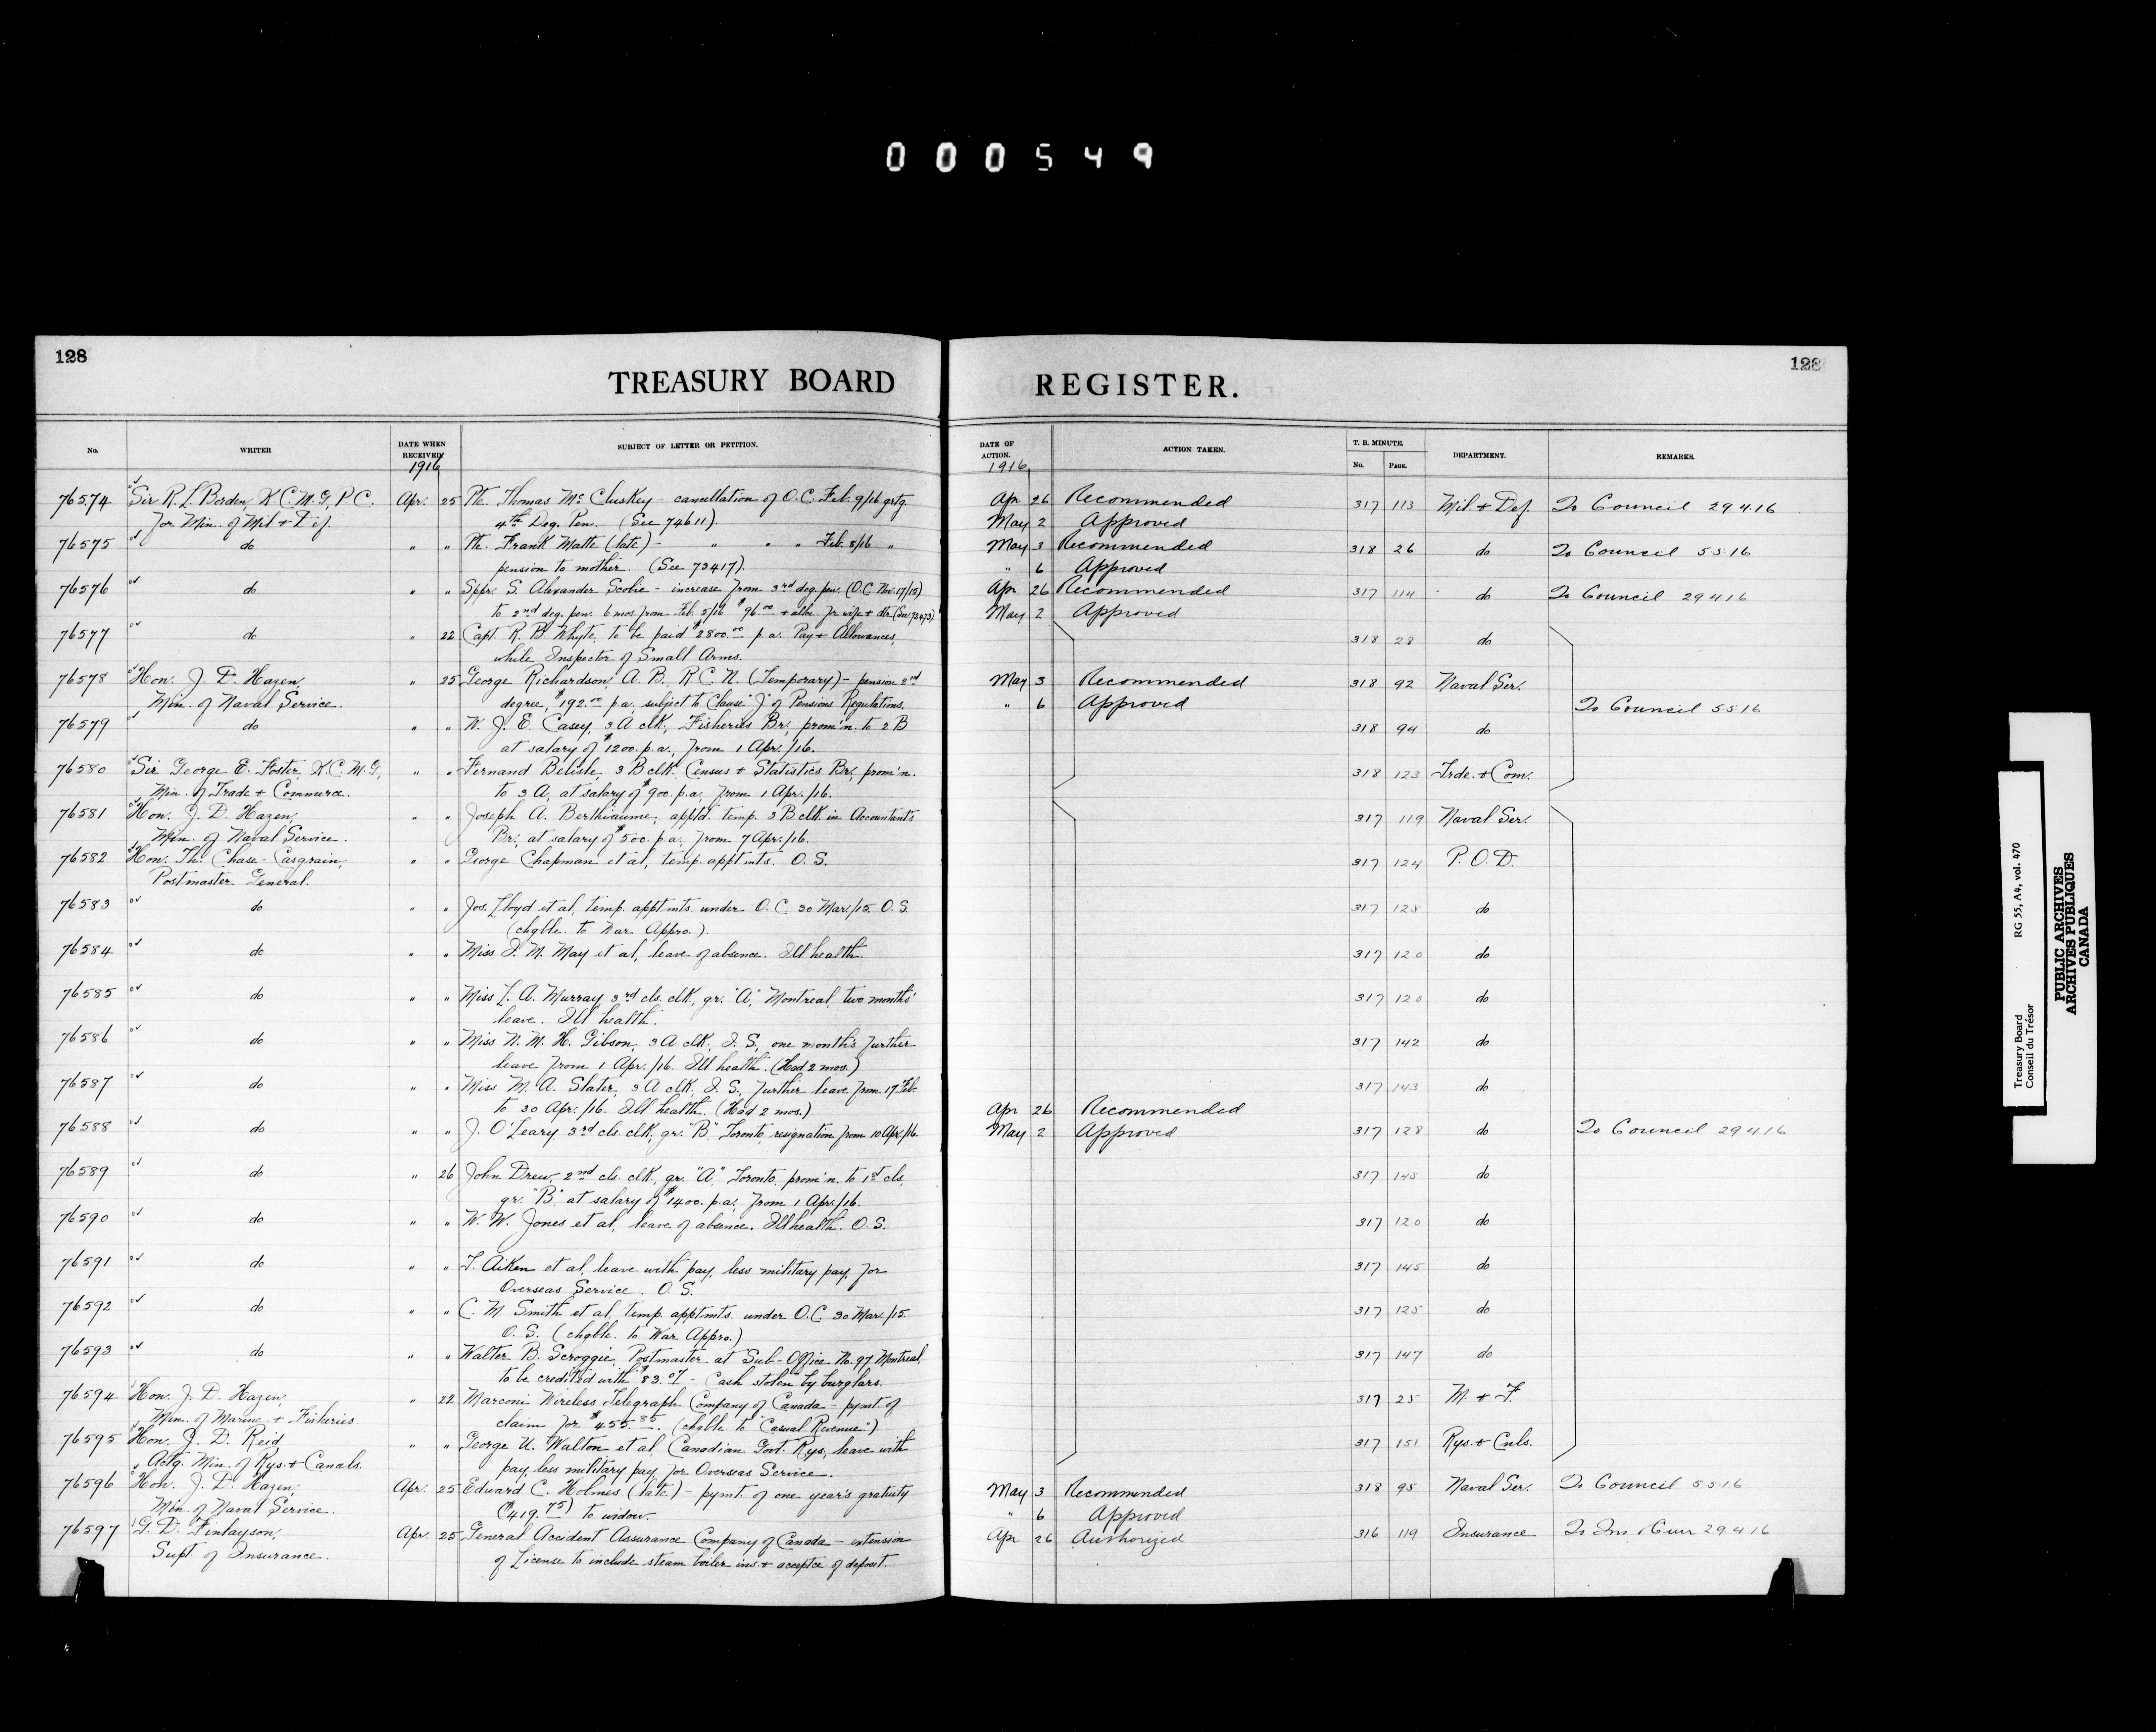 000549
128
TREASURY BOARD
No.
WRITER
DATE WHEN RECEIVED
SUBJECT OF LETTER OR PETITION.
1916
76574 Sir R. L. Borden, K.C.M.G, P.C. Apr. 25 Pte. Thomas McCluskey - cancellation of O.C. Feb. 9/16 grtg.
for Min. of Mil + Def. 4th Deg. Pen. (See 74611).
76575 do " " Pte. Frank Matte (late) - " " " Feb. 8/16 "
pension to mother. (See 73417).
76576 do " " Sppr. S. Alexander Scobie - increase from 3rd deg. pen. (O.C. Nov. 17/15)
to 2nd deg. pen. 6 mos. from Feb. 5/16 $96.00 + allce. for wife + dtr (See 72473)
76577 do " 22 Capt. R. B. Whyte, to be paid $2800.00 p.a. Pay + Allowances,
while Inspector of Small Arms.
76578 Hon. J. D. Hazen, " 25 George Richardson, A. B., R.C.N. (Temporary) - pension 2nd
Min. of Naval Service. degree, $192.00 p.a., subject to Clause "J" of Pensions Regulations.
76579 do " " W. J. E. Casey, 3 A clk, Fisheries Br., prom'n. to 2 B
at salary of $1200. p.a., from 1 Apr./16.
76580 Sir George E. Foster, K.C.M.G, " " Fernand Belisle, 3 B clk. Census + Statistics Br., prom'n.
Min. of Trade + Commerce. to 3 A, at salary of $900. p.a., from 1 Apr./16.
76581 Hon. J. D. Hazen, " " Joseph A. Berthiaume, apptd. temp. 3 B clk in Accountant's
Min. of Naval Service. Br., at salary of $500. p.a. from 7 Apr./16.
76582 Hon. Th. Chase-Casgrain, " " George Chapman et al, temp. apptmts. O. S.
Postmaster General.
76583 do " " Jos. Lloyd et al, temp. apptmts. under O. C. 30 Mar./15. O. S.
(chgble. to War Appro.).
76584 do " " Miss I. M. May et al, leave of absence. Ill health.
76585 do " " Miss L. A. Murray, 3rd cls. clk., gr. "A", Montreal, two months'
leave. Ill health.
76586 do " " Miss N. M. H. Gibson, 3 A clk, I. S., one month's further
leave from 1 Apr./16. Ill health. (Had 2 mos.)
76587 do " " Miss M. A. Slater, 3 A clk, I. S., further leave from 17 Feb.
to 30 Apr./16. Ill health. (Had 2 mos.)
76588 do " " J. O'Leary 3rd cls. clk, gr. "B" Toronto, resignation from 10 Apr./16.
76589 do " 26 John Drew, 2nd cls. clk, gr. "A" Toronto, prom'n. to 1st cls,
gr. "B" at salary of $1400. p.a., from 1 Apr./16.
76590 do " " W. W. Jones et al, leave of absence. Ill health. O. S.
76591 do " " T. Aiken et al, leave with pay, less military pay, for
Overseas Service. O. S.
76592 do " " C. M. Smith et al, temp. apptmts. under O.C. 30 Mar./15.
O. S. (chgble. to War Appro.)
76593 do " " Walter B. Scroggie, Postmaster at Sub-Office No. 97 Montreal,
to be credited with $83.07 - Cash stolen by burglars.
76594 Hon. J. D. Hazen, " 22 Marconi Wireless Telegraph Company of Canada - pymt. of
Min. of Marine + Fisheries claim for $455.85. (chgble to "Casual Revenue")
76595 Hon. J. D. Reid, " " George U. Walton et al (Canadian Govt. Rys., leave with
Actg. Min. of Rys. + Canals. pay, less military pay, for Overseas Service.
76596 Hon. J. D. Hazen, Apr. 25 Edward C. Holmes (late) - pymt. of one year's gratuity
Min. of Naval Service. ($419.75) to widow.
76597 G. D. Finlayson, Apr. 25 General Accident Assurance Company of Canada - extension
Supt. of Insurance. of License to include steam boiler ins. + acceptce of deposit.
128
REGISTER.
DATE OF ACTION.
ACTION TAKEN.
T. B. MINUTE.
No.
PAGE.
DEPARTMENT.
REMARKS.
1916
Apr 26 Recommended 317 113 Mil. + Def. To Council 29.4.16
May 2 Approved
May 3 Recommended 318 26 do To Council 5.5.16
" 6 Approved
Apr 26 Recommended 317 114 do To Council 29.4.16
May 2 Approved
318 28 do
May 3 Recommended 318 92 Naval Ser.
" 6 Approved To Council 5.5.16
318 94 do
318 123 Trde. + Com.
317 119 Naval Ser.
317 124 P. O. D.
317 125 do
317 120 do
317 120 do
317 142 do
317 143 do
Apr 26 Recommended
May 2 Approved 317 128 do To Council 29.4.16
317 148 do
317 120 do
317 145 do
317 125 do
317 147 do
317 25 M. + F.
317 151 Rys. + Cnls.
May 3 Recommended 318 95 Naval Ser. To Council 5.5.16
" 6 Approved
Apr 26 Authorized 316 119 Insurance 29.4.16
Treasury Board RG 55, A4, vol. 470
Conseil du Trésor
PUBLIC ARCHIVES
ARCHIVES PUBLIQUES
CANADA